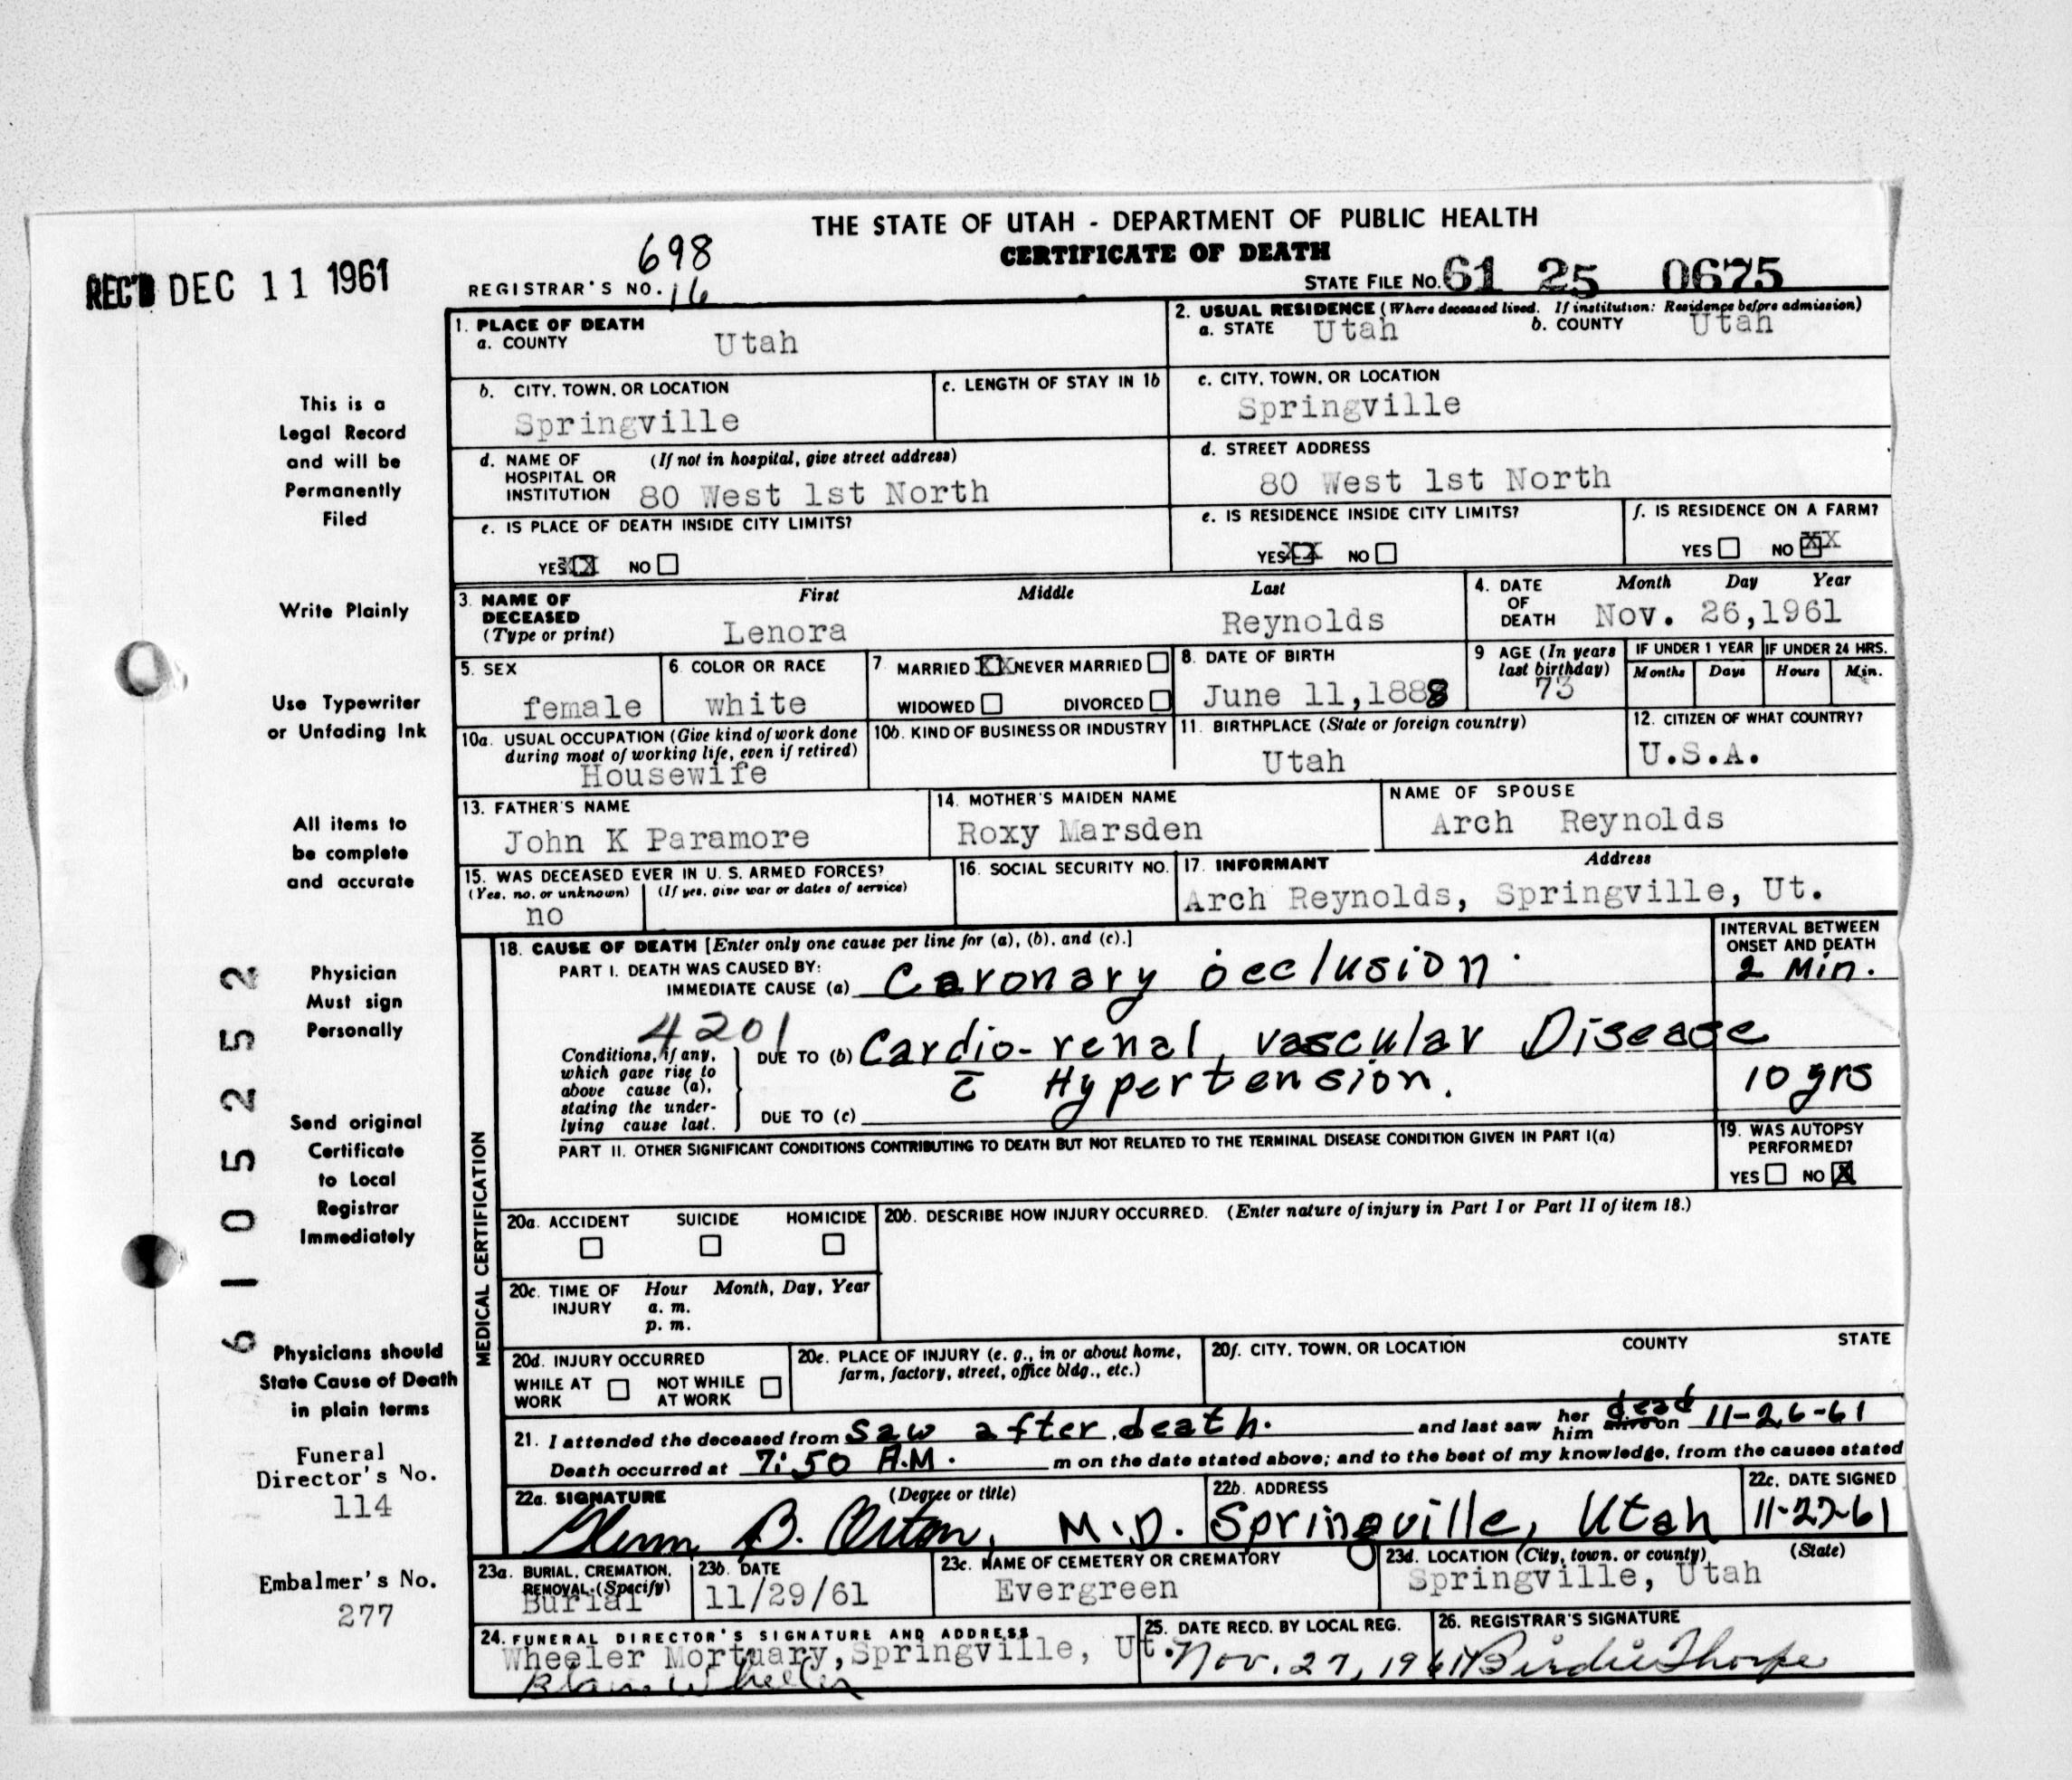 THE STATE OF UTAH - DEPARTMENT OF PUBLIC HEALTH
CERTIFICATE OF DEATH
REC'D DEC 11 1961
698
REGISTRAR'S NO. 16
STATE FILE NO. 61 25 0675
1. PLACE OF DEATH
a. COUNTY Utah
2. USUAL RESIDENCE (Where deceased lived. If institution: Residence before admission)
a. STATE Utah b. COUNTY Utah
b. CITY, TOWN, OR LOCATION
Springville
c. LENGTH OF STAY IN 1b
c. CITY, TOWN, OR LOCATION
Springville
d. NAME OF HOSPITAL OR INSTITUTION (If not in hospital, give street address)
80 West 1st North
d. STREET ADDRESS
80 West 1st North
e. IS PLACE OF DEATH INSIDE CITY LIMITS?
YES XX NO
e. IS RESIDENCE INSIDE CITY LIMITS?
YES XX NO
f. IS RESIDENCE ON A FARM?
YES NO XX
3. NAME OF DECEASED (Type or print)
First Middle Last
Lenora Reynolds
4. DATE OF DEATH Month Day Year
Nov. 26,1961
5. SEX
female
6. COLOR OR RACE
white
7. MARRIED XX NEVER MARRIED
WIDOWED DIVORCED
8. DATE OF BIRTH
June 11,1888
9 AGE (In years last birthday)
73
IF UNDER 1 YEAR
Months Days
IF UNDER 24 HRS.
Hours Min.
10a. USUAL OCCUPATION (Give kind of work done during most of working life, even if retired)
Housewife
10b. KIND OF BUSINESS OR INDUSTRY
11. BIRTHPLACE (State or foreign country)
Utah
12. CITIZEN OF WHAT COUNTRY?
U.S.A.
13. FATHER'S NAME
John K Paramore
14. MOTHER'S MAIDEN NAME
Roxy Marsden
NAME OF SPOUSE
Arch Reynolds
15. WAS DECEASED EVER IN U. S. ARMED FORCES?
(Yes, no, or unknown) (If yes, give war or dates of service)
no
16. SOCIAL SECURITY NO.
17. INFORMANT Address
Arch Reynolds, Springville, Ut.
MEDICAL CERTIFICATION
18. CAUSE OF DEATH [Enter only one cause per line for (a), (b), and (c).]
PART I. DEATH WAS CAUSED BY:
IMMEDIATE CAUSE (a) Caronary occlusion
INTERVAL BETWEEN ONSET AND DEATH
2 Min.
4201
Conditions, if any, which gave rise to above cause (a), stating the underlying cause last.
DUE TO (b) Cardio-renal, vascular Disease
c̄ Hypertension.
10 yrs
DUE TO (c)
PART II. OTHER SIGNIFICANT CONDITIONS CONTRIBUTING TO DEATH BUT NOT RELATED TO THE TERMINAL DISEASE CONDITION GIVEN IN PART I(a)
19. WAS AUTOPSY PERFORMED?
YES NO X
20a. ACCIDENT SUICIDE HOMICIDE
20b. DESCRIBE HOW INJURY OCCURRED. (Enter nature of injury in Part I or Part II of item 18.)
20c. TIME OF INJURY Hour Month, Day, Year
a. m.
p. m.
20d. INJURY OCCURRED
WHILE AT WORK NOT WHILE AT WORK
20e. PLACE OF INJURY (e. g., in or about home, farm, factory, street, office bldg., etc.)
20f. CITY, TOWN, OR LOCATION COUNTY STATE
21. I attended the deceased from saw after death. and last saw her him alive dead on 11-26-61
Death occurred at 7:50 A.M. m on the date stated above; and to the best of my knowledge, from the causes stated
22a. SIGNATURE (Degree or title)
Glenn B. Orton, M.D.
22b. ADDRESS
Springville, Utah
22c. DATE SIGNED
11-27-61
23a. BURIAL, CREMATION, REMOVAL (Specify)
Burial
23b. DATE
11/29/61
23c. NAME OF CEMETERY OR CREMATORY
Evergreen
23d. LOCATION (City, town, or county) (State)
Springville, Utah
24. FUNERAL DIRECTOR'S SIGNATURE AND ADDRESS
Wheeler Mortuary,Springville, Ut.
Blain Wheeler
25. DATE RECD. BY LOCAL REG.
Nov. 27, 1961
26. REGISTRAR'S SIGNATURE
Birdie Thorpe
This is a
Legal Record
and will be
Permanently
Filed
Write Plainly
Use Typewriter
or Unfading Ink
All items to
be complete
and accurate
Physician
Must sign
Personally
Send original
Certificate
to Local
Registrar
Immediately
Physicians should
State Cause of Death
in plain terms
Funeral
Director's No.
114
Embalmer's No.
277
61052522